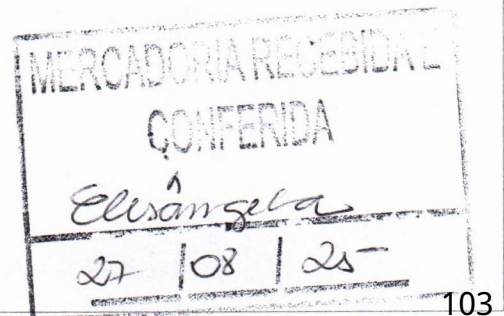 MERCADORIA RECEBIDA E
CONFERIDA
Elisângela
27 | 08 | 25
103